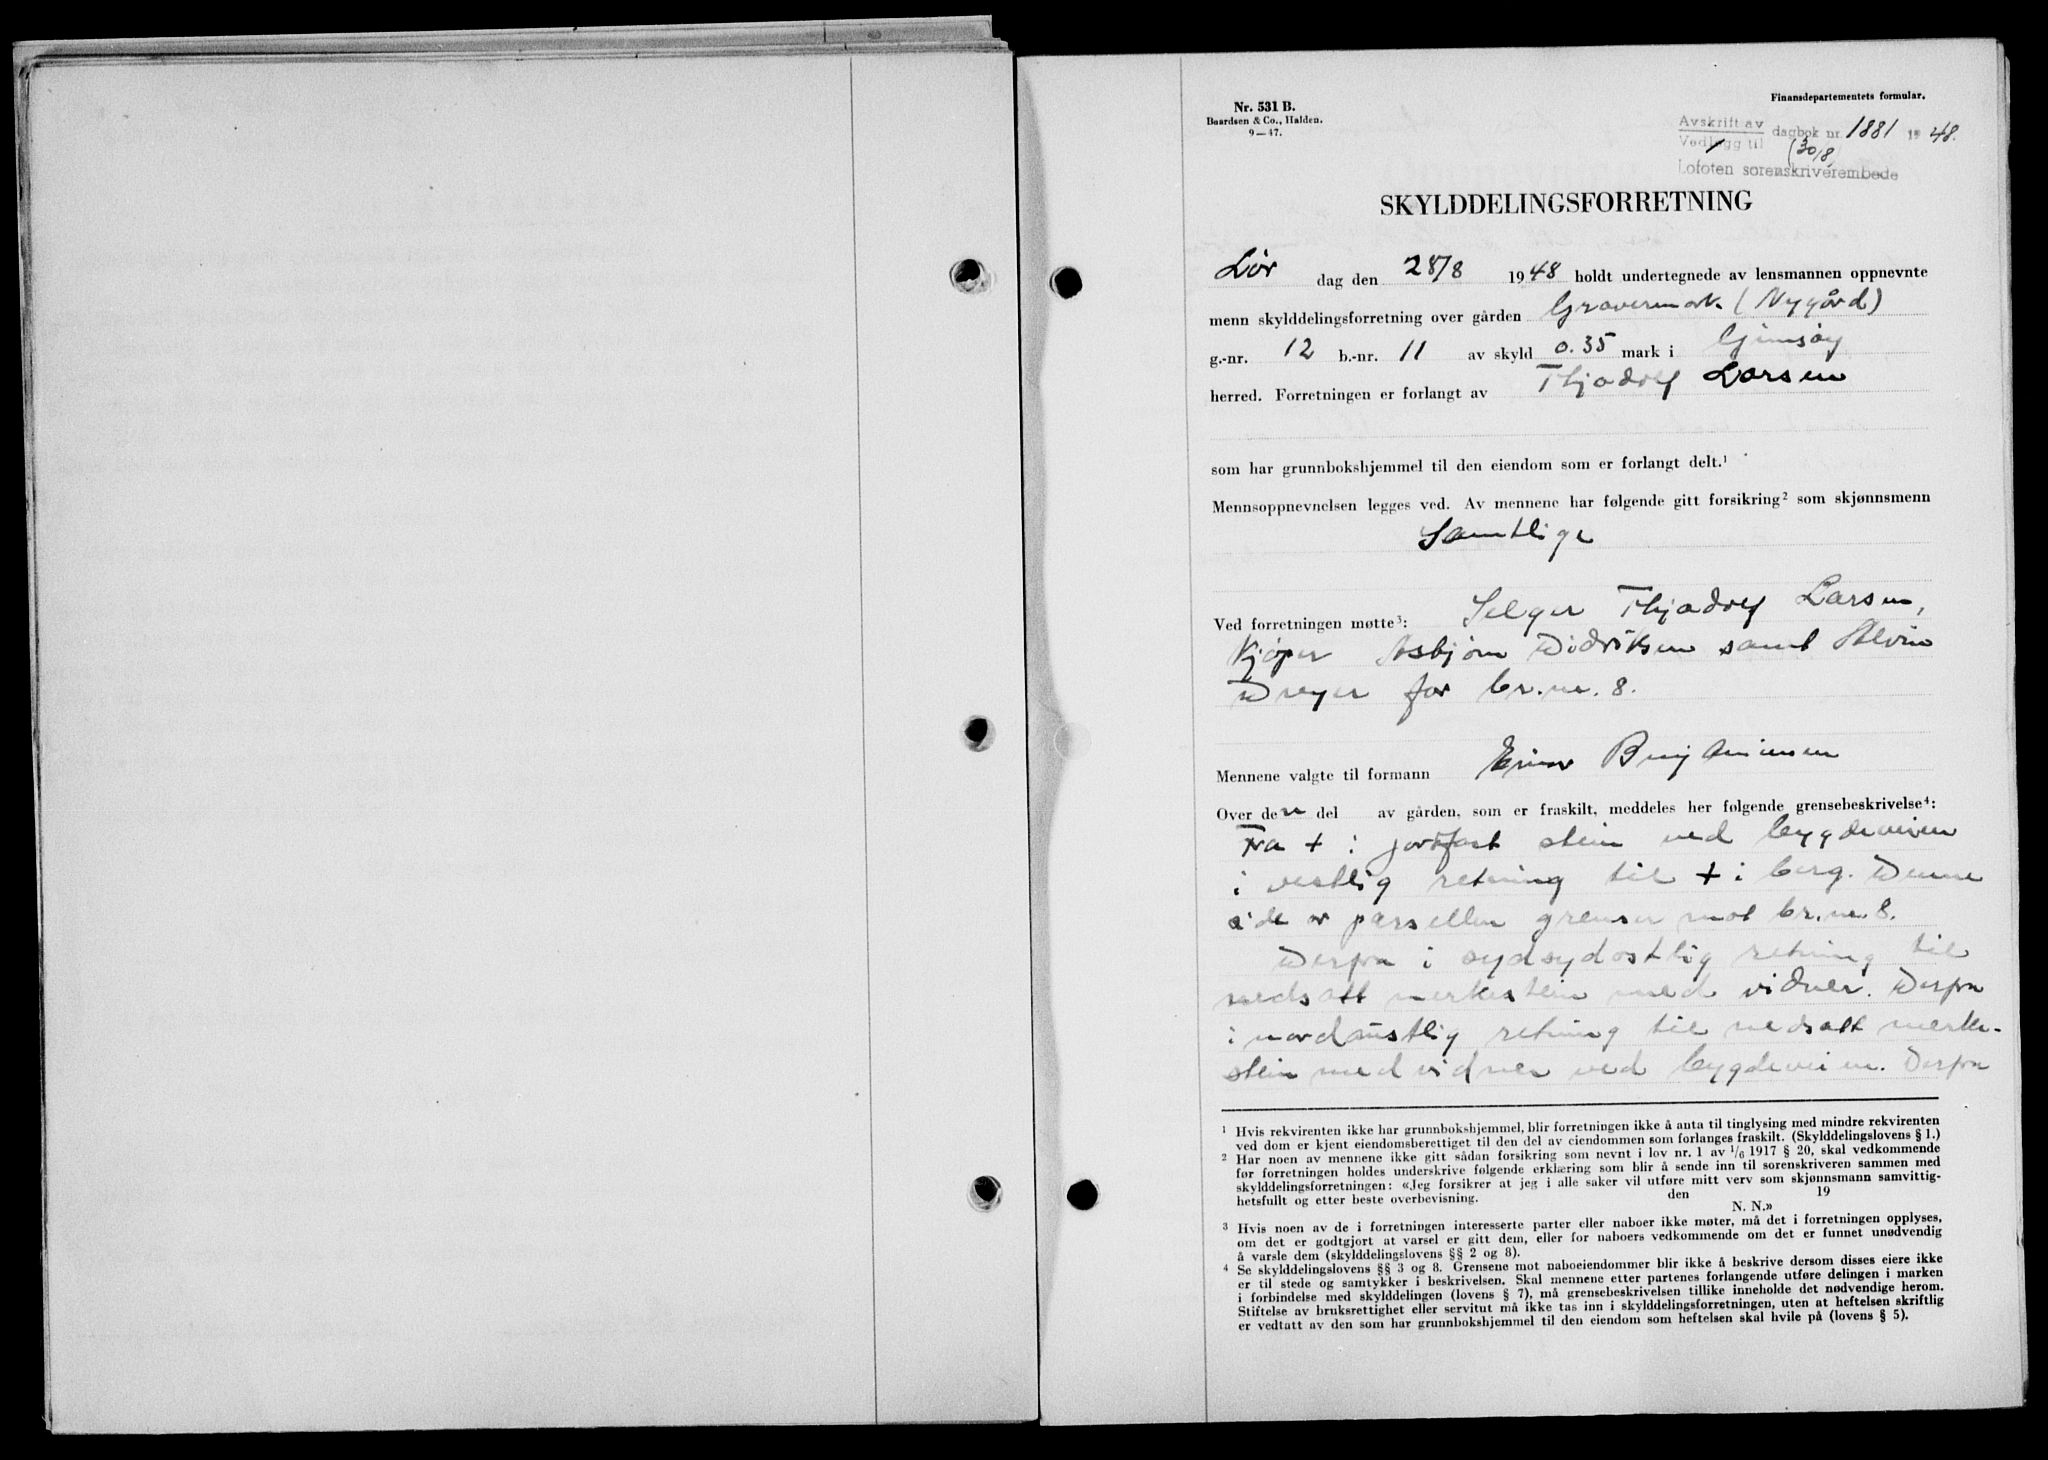 Nr. 531 B.
Baardsen & Co., Halden.
9—47.
Finansdepartementets formular.
Avskrift av
Vedlegg til dagbok nr. 1881 1948.
(30/8)
Lofoten sorenskriverembede
SKYLDDELINGSFORRETNING
Lør dag den 28/8 1948 holdt undertegnede av lensmannen oppnevnte
menn skylddelingsforretning over gården Gravermark (Nygård)
g.-nr. 12 b.-nr. 11 av skyld 0.35 mark i Gimsøy
herred. Forretningen er forlangt av Thjodolf Larsen
som har grunnbokshjemmel til den eiendom som er forlangt delt.¹
Mennsoppnevnelsen legges ved. Av mennene har følgende gitt forsikring² som skjønnsmenn
Samtlige
Ved forretningen møtte³: Selger Thjodolf Larsen,
Kjøper Asbjørn Didriksen samt Alvin
Dreyer for br.nr. 8.
Mennene valgte til formann Einar
Over den del av gården, som er fraskilt, meddeles her følgende grensebeskrivelse⁴:
Fra + i jordfast stein ved bygdeveien
i vestlig retning til + i berg. Denne
side av parsellen grenser mot br.nr. 8.
Derfra i sydsydostlig retning til
nedsatt merkestein med vidner. Derfra
i nordøstlig retning til nedsatt merke-
stein med vidner ved bygdeveien. Derfra
¹ Hvis rekvirenten ikke har grunnbokshjemmel, blir forretningen ikke å anta til tinglysing med mindre rekvirenten
ved dom er kjent eiendomsberettiget til den del av eiendommen som forlanges fraskilt. (Skylddelingslovens § 1.)
² Har noen av mennene ikke gitt sådan forsikring som nevnt i lov nr. 1 av 1/6 1917 § 20, skal vedkommende
før forretningen holdes underskrive følgende erklæring som blir å sende inn til sorenskriveren sammen med
skylddelingsforretningen: «Jeg forsikrer at jeg i alle saker vil utføre mitt verv som skjønnsmann samvittig-
hetsfullt og etter beste overbevisning. den 19
N. N.»
³ Hvis noen av de i forretningen interesserte parter eller naboer ikke møter, må det i forretningen opplyses,
om det er godtgjort at varsel er gitt dem, eller for naboers vedkommende om det er funnet unødvendig
å varsle dem (skylddelingslovens §§ 2 og 8).
⁴ Se skylddelingslovens §§ 3 og 8. Grensene mot naboeiendommer blir ikke å beskrive dersom disses eiere ikke
er til stede og samtykker i beskrivelsen. Skal mennene etter partenes forlangende utføre delingen i marken
i forbindelse med skylddelingen (lovens § 7), må grensebeskrivelsen tillike inneholde det nødvendige herom.
Stiftelse av bruksrettighet eller servitut må ikke tas inn i skylddelingsforretningen, uten at heftelsen skriftlig
er vedtatt av den som har grunnbokshjemmel til den eiendom som heftelsen skal hvile på (lovens § 5).